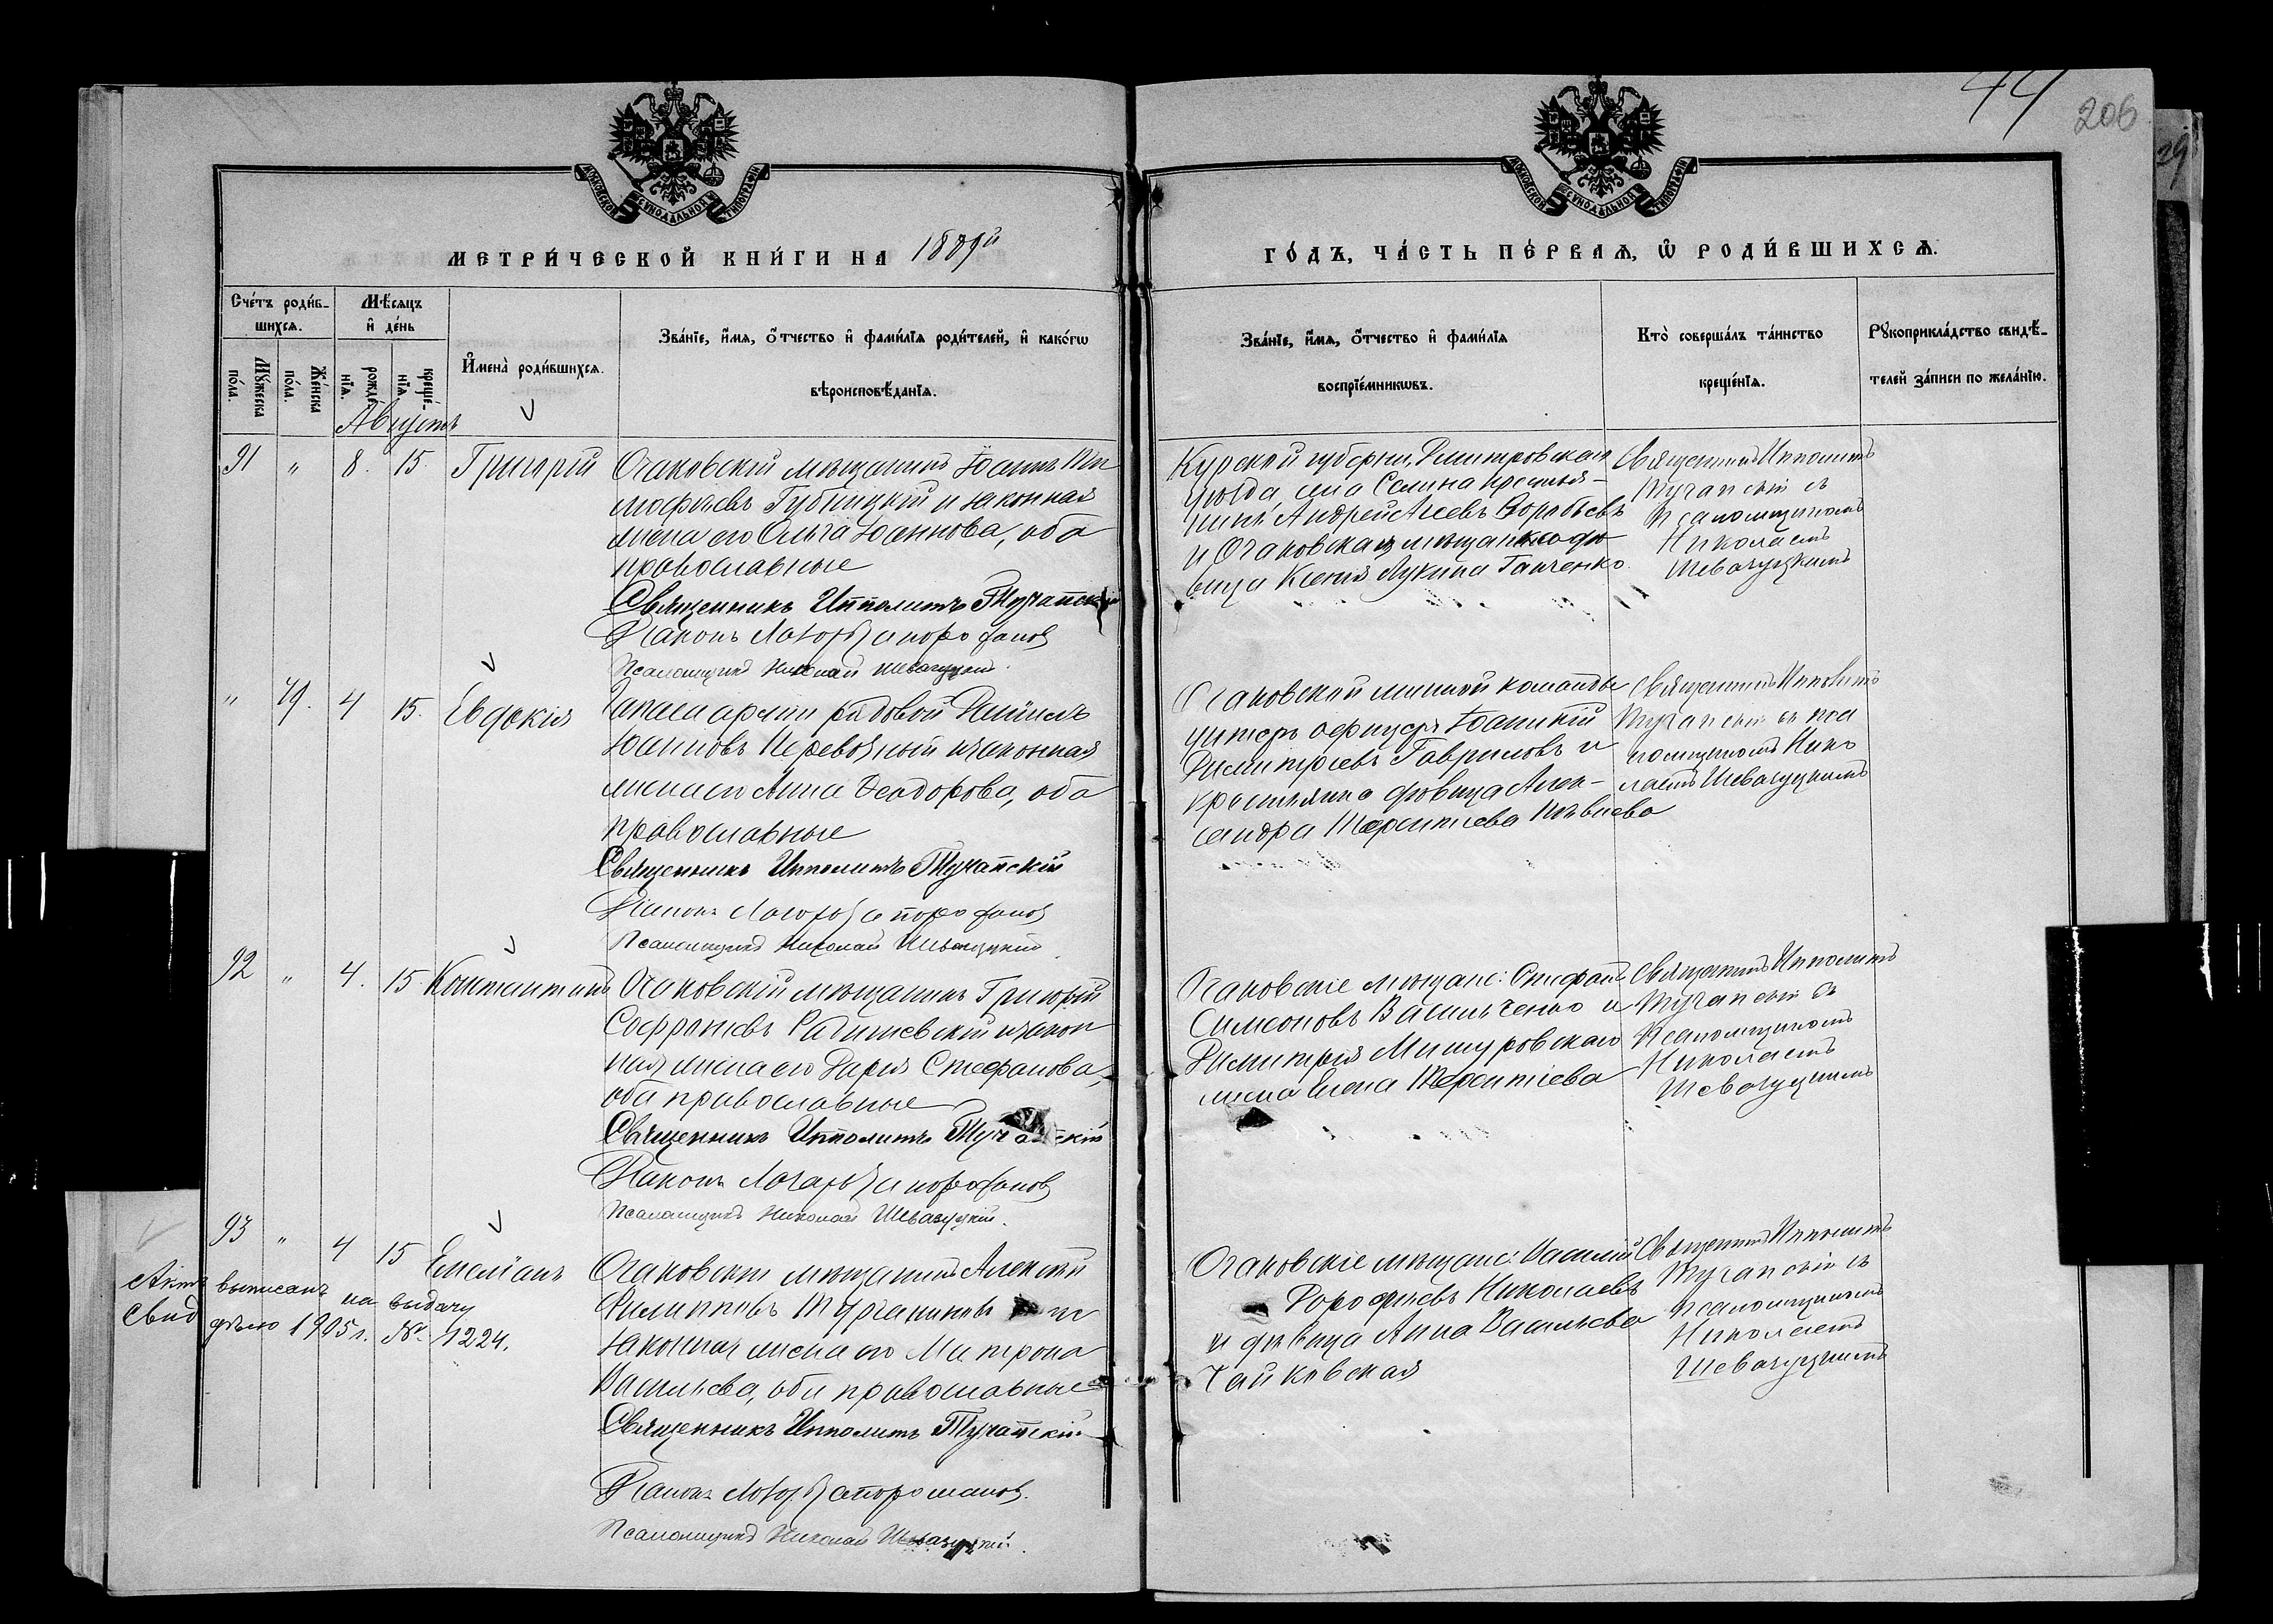 44
206
29
МОСКОВСКОЙ СѴНОДАЛЬНОЙ ТИПОГРАФІИ
МОСКОВСКОЙ СѴНОДАЛЬНОЙ ТИПОГРАФІИ
МЕТРИ́ЧЕСКОЙ КНИ́ГИ НА 1889й
ГО́ДЪ, ЧА́СТЬ ПЕ́РВАѦ, Ѡ РОДИ́ВШИХСѦ.
Сче́тъ роди́в-
шихсѧ.
Мѣ́сѧцъ
и҆ де́нь
Мꙋ́жеска
по́ла.
Же́нска
по́ла.
рожде́-
нїѧ.
креще́-
нїѧ.
И҆мена̀ роди́вшихсѧ.
Зва́нїе, и҆́мѧ, ѻ҆́тчество и҆ фами́лїѧ роди́телей, и҆ како́гѡ
вѣроисповѣ́данїѧ.
Зва́нїе, и҆́мѧ, ѻ҆́тчество и҆ фами́лїѧ
воспрїе́мникѡвъ.
Кто̀ соверша́лъ та́инство
креще́нїѧ.
Рꙋкоприкла́дство свидѣ́-
телей за́писи по жела́нїю.
Августъ
91 " 8. 15. Григорій
Очаковскій мѣщанинъ Іоаннъ Ти
мофѣевъ Губницкій и законная
жена его Ольга Іоаннова, оба
православные
Священникъ Ипполитъ Тучапскій
Діаконъ
Псаломщикъ Николай Шевазуцкій.
Курской губерніи, Дмитровскаго
уѣзда, села Селина крестья-
нинъ Андрей Агеевъ Воробьевъ
и Очаковская мѣщанка дѣ
вица Ксенія Лукина Ганченко.
Священникъ Ипполитъ
Тучапскій съ
Псаломщикомъ
Николаемъ
Шевазуцкимъ
" 79. 4 15. Евдокія
Запаса арміи рядовой Даніилъ
Іоанновъ Перевозный и законная
жена его Анна Ѳеодорова, оба
православные
Священникъ Ипполитъ Тучапскій
Діаконъ
Псаломщикъ Николай Шевазуцкій.
Очаковской минной команды
унтеръ офицеръ Іоанникій
Димитріевъ Гавриловъ и
крестьянка дѣвица Алек-
сандра Терентіева
Священникъ Ипполитъ
Тучапскій съ пса
ломщикомъ Нико
лаемъ Шевазуцкимъ
92 " 4. 15 Константинъ
Очаковскій мѣщанинъ Григорій
Софроніевъ Рабишевскій и закон
ная жена его Дарія Стефанова,
оба православные
Священникъ Ипполитъ Тучапскій
Діаконъ
Псаломщикъ Николай Шевазуцкій.
Очаковскіе мѣщане: Стефанъ
Симеоновъ Васильченко и
Димитрія Мишуровскаго
жена Елена Терентіева
Священникъ Ипполитъ
Тучапскій съ
Псаломщикомъ
Николаемъ
Шевазуцкимъ
93 " 4 15 Емеліанъ
Актъ выписанъ на выдачу
Свид дѣло 1905 г. № 4224.
Очаковскій мѣщанинъ Алексѣй
Филипповъ и
законная жена его Матрона
Васильева, оба православные
Священникъ Ипполитъ Тучапскій
Діаконъ
Псаломщикъ Николай Шевазуцкій.
Очаковскіе мѣщане: Василій
Дорофѣевъ Николаевъ
и дѣвица Анна Васильева
Чайковская
Священникъ Ипполитъ
Тучапскій съ
Псаломщикомъ
Николаемъ
Шевазуцкимъ